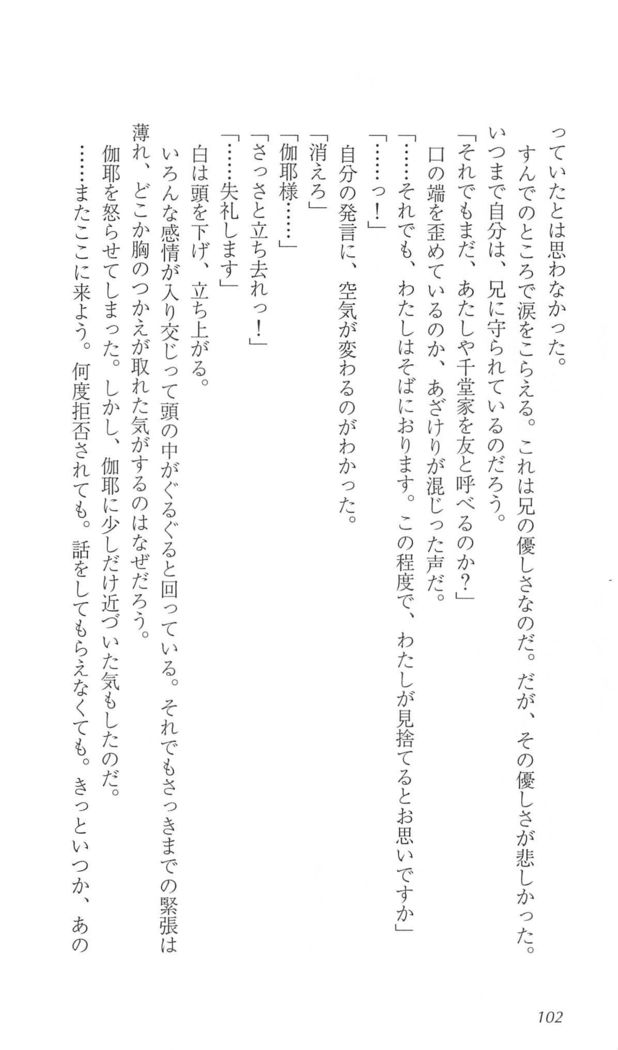 っていたとは思わなかった。
すんでのところで涙をこらえる。これは兄の優しさなのだ。だが、その優しさが悲しかった。
いつまで自分は、兄に守られているのだろう。
「それでもまだ、あたしや千堂家を友と呼べるのか？」
口の端を歪めているのか、あざけりが混じった声だ。
「……それでも、わたしはそばにおります。この程度で、わたしが見捨てるとお思いですか」
「……っ！」
自分の発言に、空気が変わるのがわかった。
「消えろ」
「伽耶様……」
「さっさと立ち去れっ！」
「……失礼します」
白は頭を下げ、立ち上がる。
いろんな感情が入り交じって頭の中がぐるぐると回っている。それでもさっきまでの緊張は
薄れ、どこか胸のつかえが取れた気がするのはなぜだろう。
伽耶を怒らせてしまった。しかし、伽耶に少しだけ近づいた気もしたのだ。
……またここに来よう。何度拒否されても。話をしてもらえなくても。きっといつか、あの
102